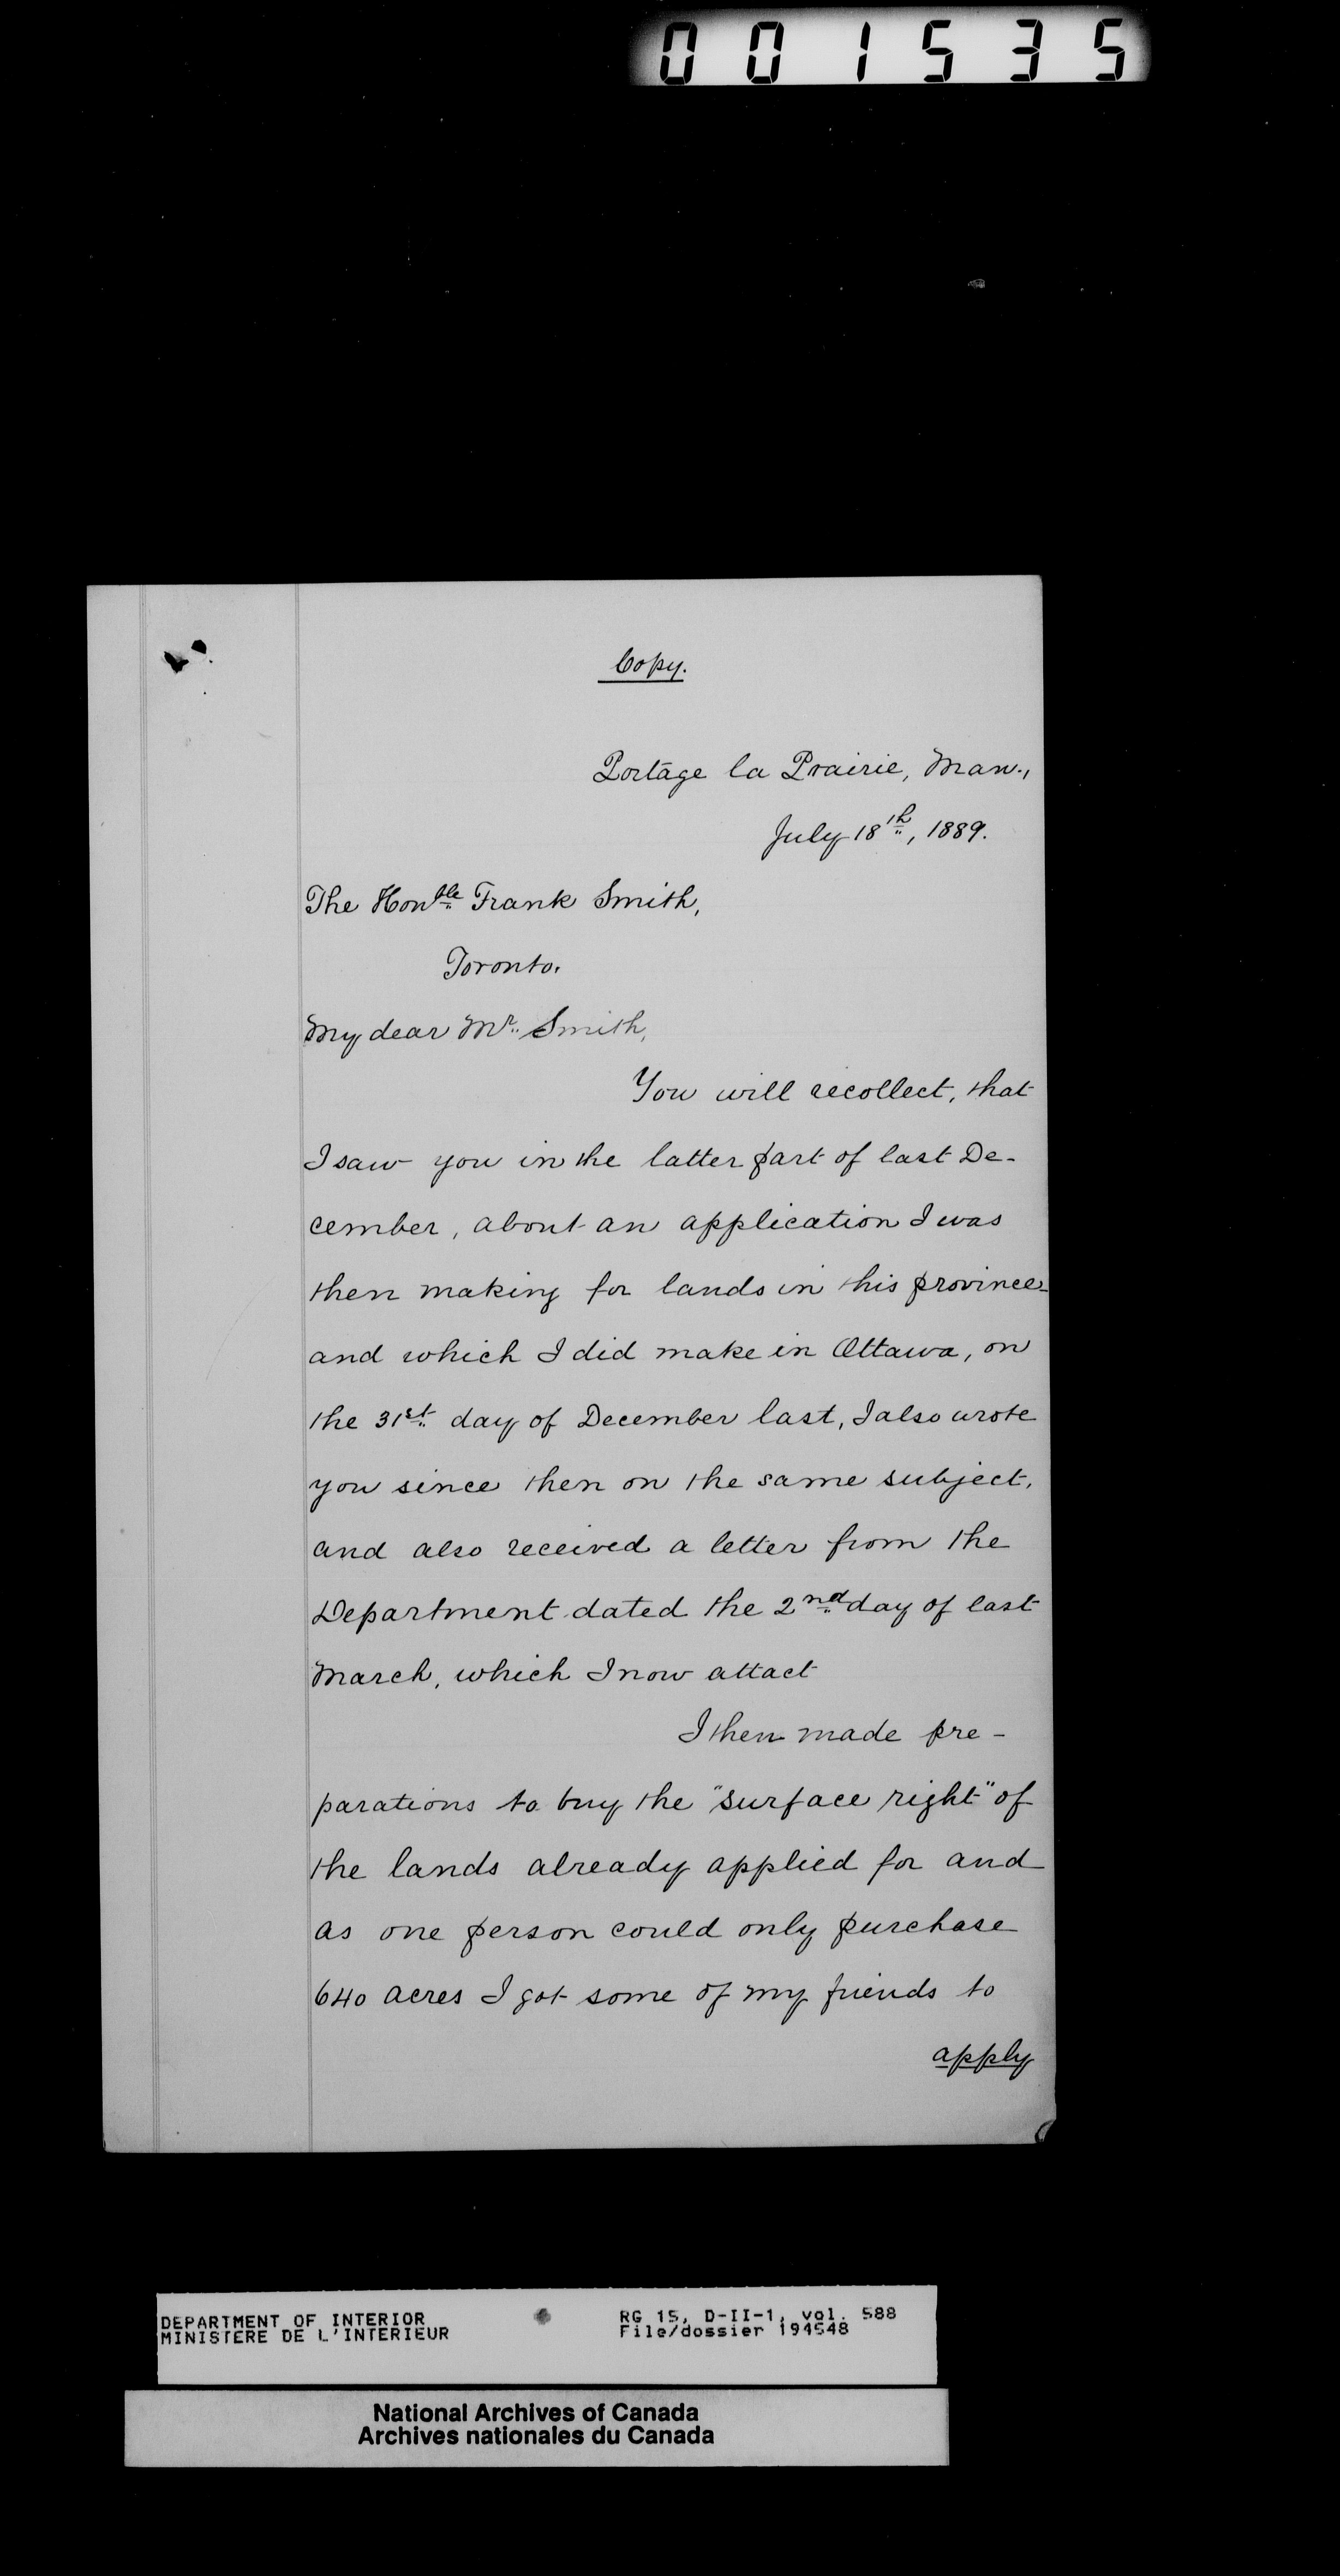 001535
Copy.
Portage la Prairie, Man.,
July 18th, 1889.
The Honble Frank Smith,
Toronto.
My dear Mr. Smith,
You will recollect, that
I saw you in the latter part of last De-
cember, about an application I was
then making for lands in this province
and which I did make in Ottawa, on
the 31st day of December last, I also wrote
you since then on the same subject,
and also received a letter from the
Department dated the 2nd day of last
March, which I now attact
I then made pre-
parations to buy the "surface right" of
the lands already applied for and
as one person could only purchase
640 acres I got some of my friends to
apply
DEPARTMENT OF INTERIOR
MINISTERE DE L'INTERIEUR
RG 15, D-II-1, vol. 588
File/dossier 194548
National Archives of Canada
Archives nationales du Canada